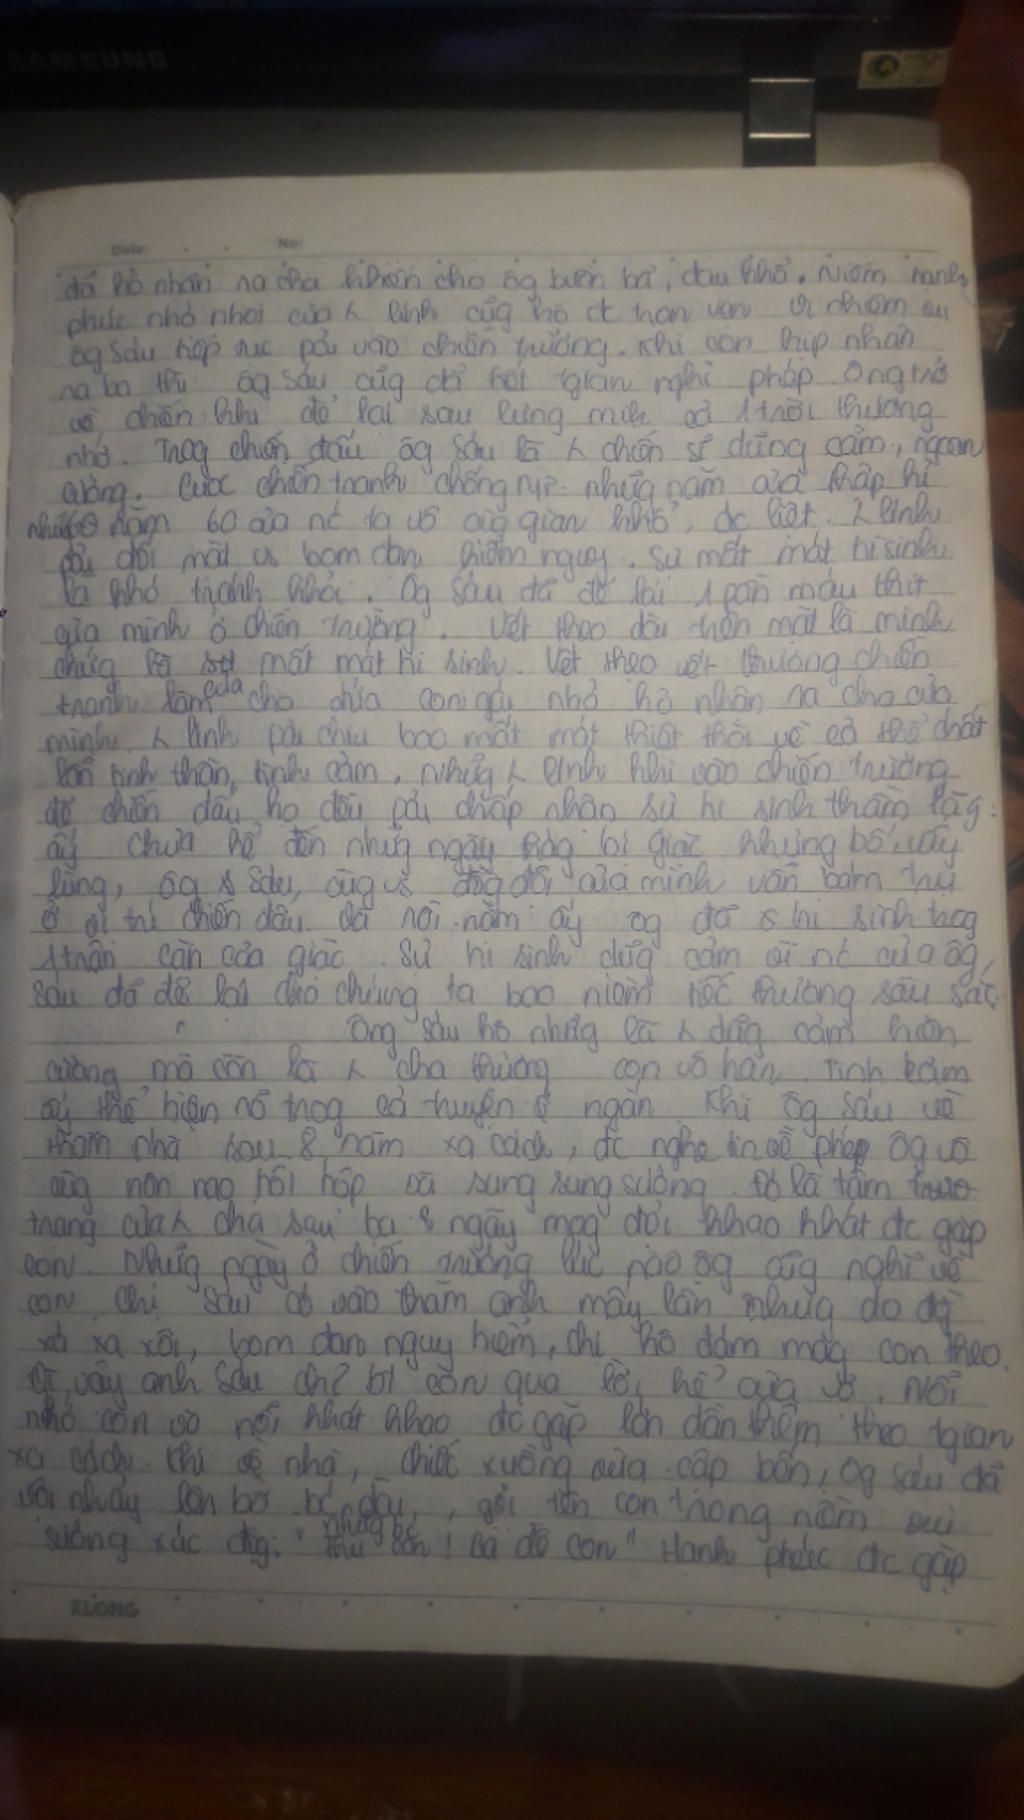 SAMSUNG
Date: No:
đã hô nhận ra cha khiến cho ôg buồn bã, đau khổ. Niềm hạnh
phúc nhỏ nhoi của λ lính cũg hô đc trọn vẹn vì nhiệm vụ
ôg Sáu tiếp tục pải vào chiến trường. Khi con kịp nhận
ra ba thì ôg Sáu cũg đã hết tgian nghỉ phép. Ông trở
về chiến khu để lại sau lưng mìh cả 1 trời thương
nhớ. Trog chiến đấu ôg Sáu là λ chiến sĩ dũng cảm, ngoan
cường. Cuộc chiến tranh chống Mỹ những năm của thập kỉ
những năm 60 của nc ta vô cùg gian khổ, ác liệt. λ lính
pải đối mặt vs bom đạn hiểm nguy. Sự mất mát hi sinh
là khó tránh khỏi. Ôg Sáu đã để lại 1 pần máu thịt
của mình ở chiến trường. Vết thẹo dài trên mặt là minh
chứg là sự mất mát hi sinh. Vết thẹo vết thương chiến
tranh làm cho đứa con gái nhỏ hô nhận ra cha của
mình. λ lính pải chịu bao mất mát thiệt thòi về cả thể chất
lẫn tinh thần, tình cảm. Nhữg λ lính khi vào chiến trường
để chiến đấu họ đều pải chấp nhận sự hi sinh thầm lặg
ấy. Chưa kể đến nhữg ngày thág bị giặc khủng bố, vây
lùng, ôg Sáu cũg vs đồg đội của mình vẫn bám trụ
ở vị trí chiến đấu. Và rồi năm ấy ôg đã hi sinh trog
1 trận càn của giặc. Sự hi sinh dũg cảm vì nc của ôg
Sáu đã để lại cho chúng ta bao niềm tiếc thương sâu sắc.
Ông Sáu hô nhữg là λ dũg cảm kiên
cường mà còn là λ cha thương con vô hạn. Tình cảm
ấy thể hiện rõ trog cả truyện ngắn. Khi ôg Sáu về
thăm nhà sau 8 năm xa cách, đc nghe tin về phép ôg vô
cùg nôn nao, hồi hộp và sung sung sướng. Đó là tâm
trạng của λ cha sau bao ngày mog đợi khao khát đc gặp
con. Nhữg ngày ở chiến trường lúc nào ôg cũg nghĩ về
con. Chị Sáu có vào thăm anh mấy lần nhưg do đg
xá xa xôi, bom đạn nguy hiểm, chị hô dám mag con theo.
Vì vậy anh Sáu chỉ bt con qua lời kể của vợ. Nỗi
nhớ con và nỗi khát khao đc gặp lớn dần thêm theo tgian
xa cách. Khi về nhà, chiếc xuồng vừa cập bến, ôg Sáu đã
vội nhảy lên bờ, gọi tên con trong niềm vui
sướng xúc độg: "Thu con! Ba đây con" Hạnh phúc đc gặp
KLONG